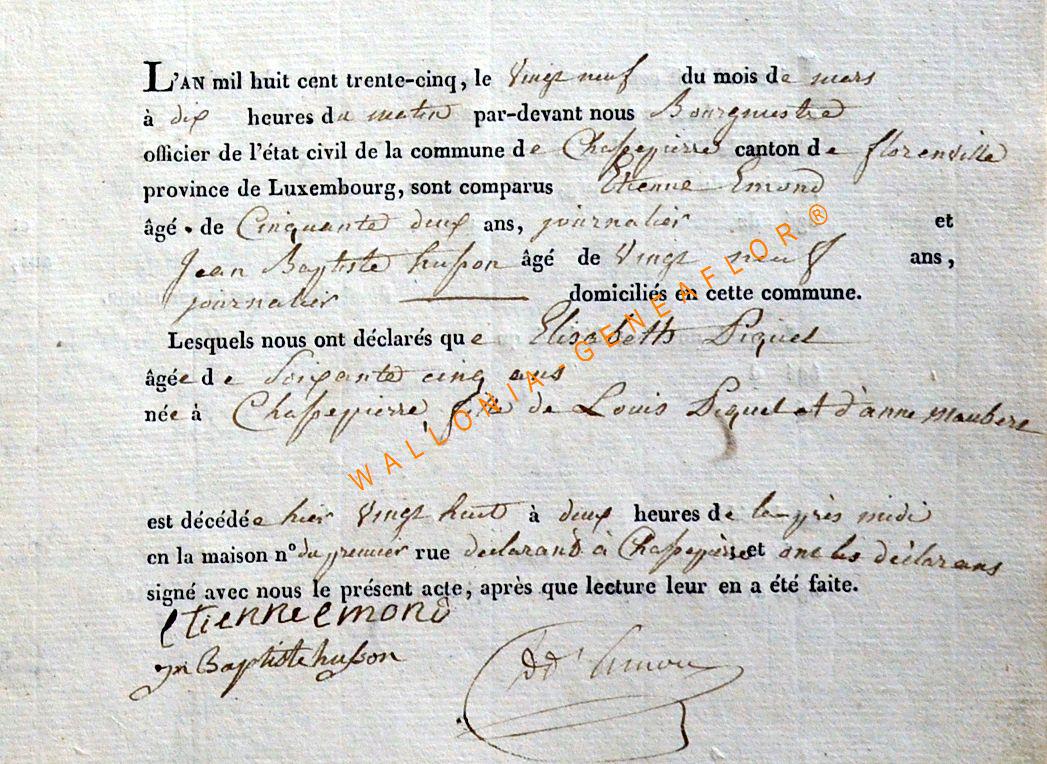 L'AN mil huit cent trente-cinq, le vingt neuf du mois de mars
à dix heures du matin par-devant nous Bourgmestre
officier de l'état civil de la commune de Chassepierre canton de florenville
province de Luxembourg, sont comparus Etienne Emond
âgé de Cinquante deux ans, journalier et
Jean Baptiste husson âgé de vingt neuf ans,
journalier domiciliés en cette commune.
Lesquels nous ont déclarés que Elisabeth Piquet
âgée de Soixante cinq ans
née à Chassepierre, fille de Louis Piquet et d'anne maubere
est décédée hier vingt huit à deux heures de laprès midi
en la maison n° du premier rue déclarant à Chassepierre, et ont les déclarans
signé avec nous le présent acte, après que lecture leur en a été faite.
etienne emond
jn Baptiste husson
WALLONIA-GENEAFLOR®